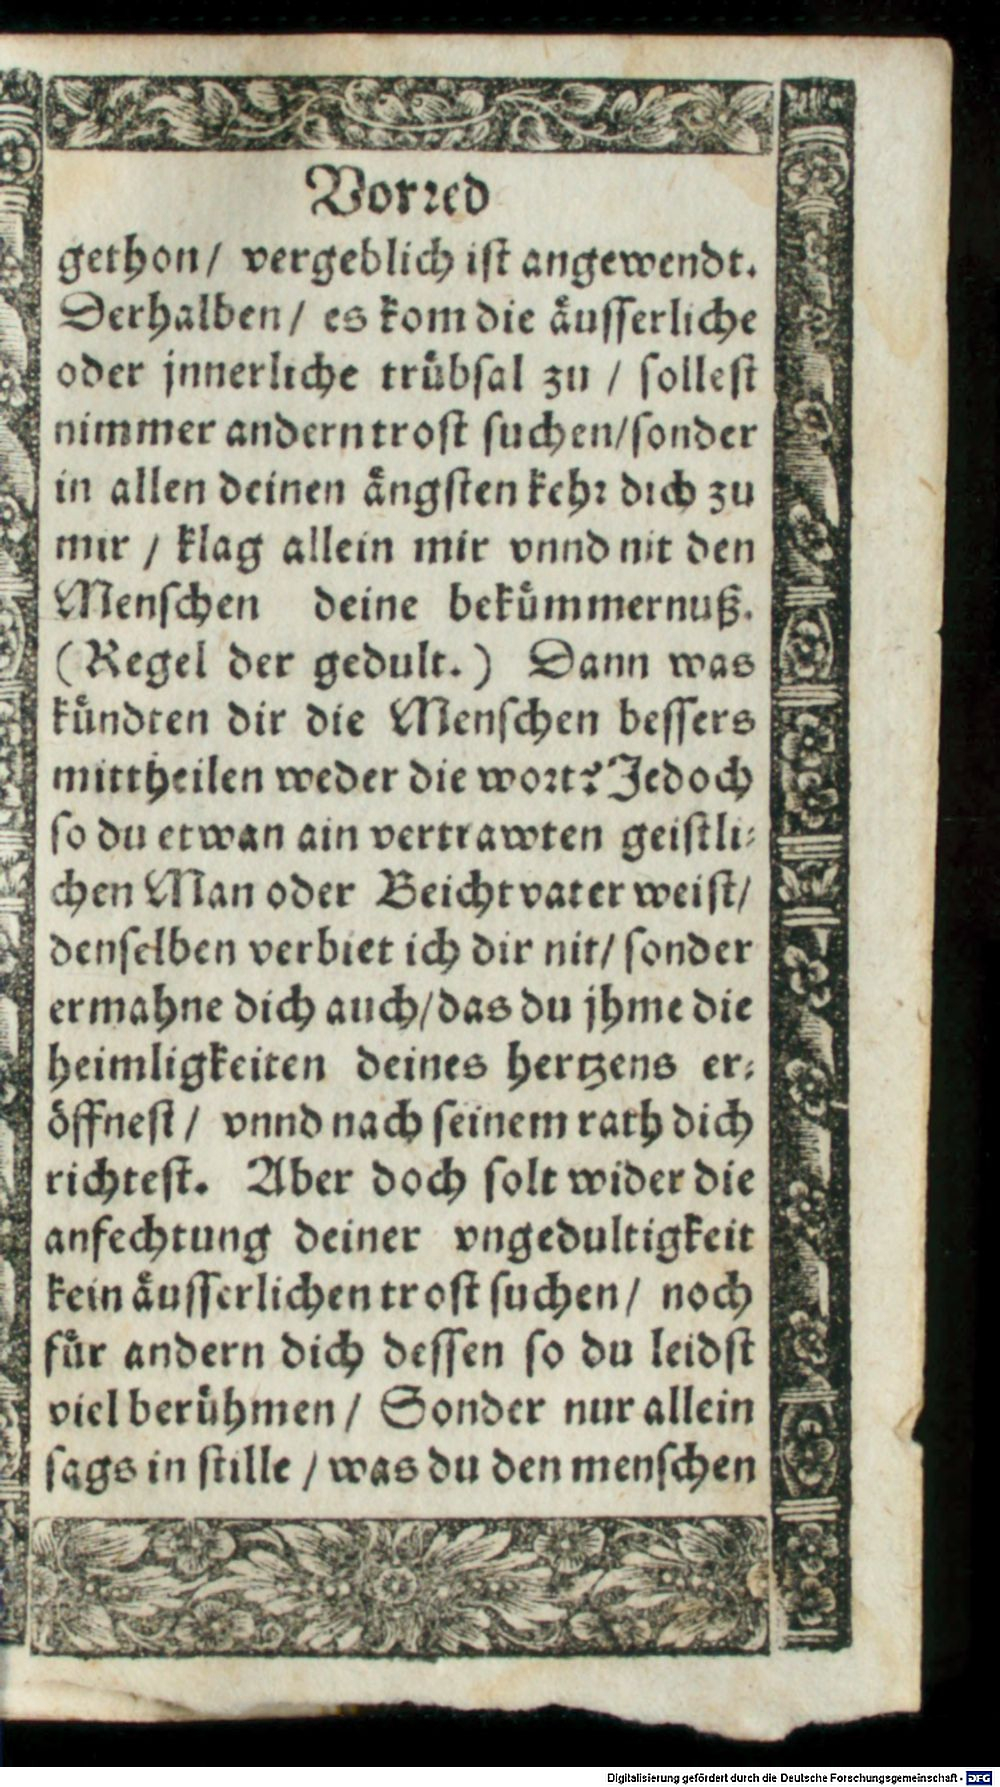 Vorred
gethon/ vergeblich ist angewendt.
Derhalben/ es kom die äusserliche
oder jnnerliche trübsal zu / sollest
nimmer andern trost suchen/sonder
in allen deinen ängsten kehr dich zu
mir / klag allein mir vnnd nit den
Menschen deine bekümmernuß.
(Regel der gedult.) Dann was
kündten dir die Menschen bessers
mittheilen weder die wort? Jedoch
so du etwan ain vertrawten geistli-
chen Man oder Beichtvater weist/
denselben verbiet ich dir nit/ sonder
ermahne dich auch/das du jhme die
heimligkeiten deines hertzens er-
öffnest/ vnnd nach seinem rath dich
richtest. Aber doch solt wider die
anfechtung deiner vngedultigkeit
kein äusserlichen trost suchen/ noch
für andern dich dessen so du leidst
viel berühmen/ Sonder nur allein
sags in stille / was du den menschen
Digitalisierung gefördert durch die Deutsche Forschungsgemeinschaft - DFG